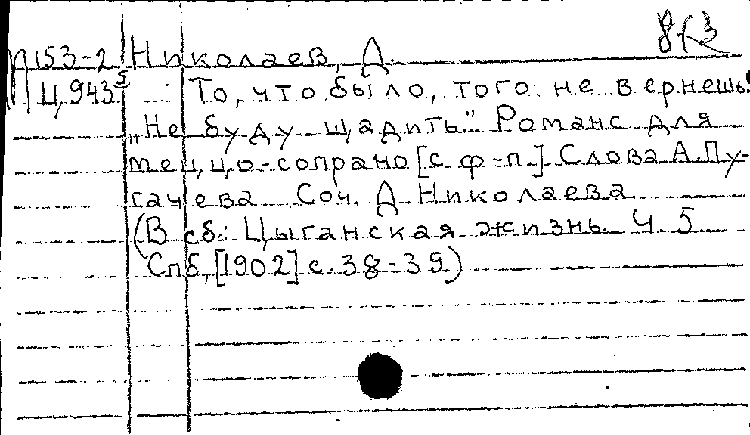 М 153-2 Николаев, Д
Ц943⁵ То, что было, того не вернешь!
„Не буду щадить." Романс для
меццо-сопрано [с ф-п.] Слова А. Пу-
гачева Соч. Д Николаева
(В сб.: Цыганская жизнь. Ч. 5
Спб, [1902] с. 38-39)